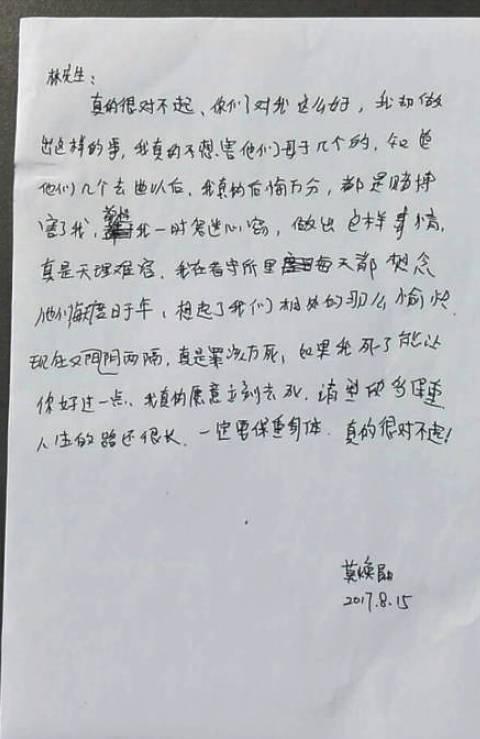 林先生：
真的很对不起、你们对我这么好，我却做
出这样的事，我真的不想害他们母子几个的，知道
他们几个去世以后，我真的后悔万分，都是赌博
害了我，我一时鬼迷心窍，做出这样事情，
真是天理难容，我在看守所里每天都想念
他们每度日于年，想起了我们相处的那么愉快，
现在又阴阳两隔，真是罪该万死，如果我死了能让
你好过一点、我真的愿意立刻去死，请坚强多保重
人生的路还很长，一定要保重身体，真的很对不起！
莫焕晶
2017.8.15